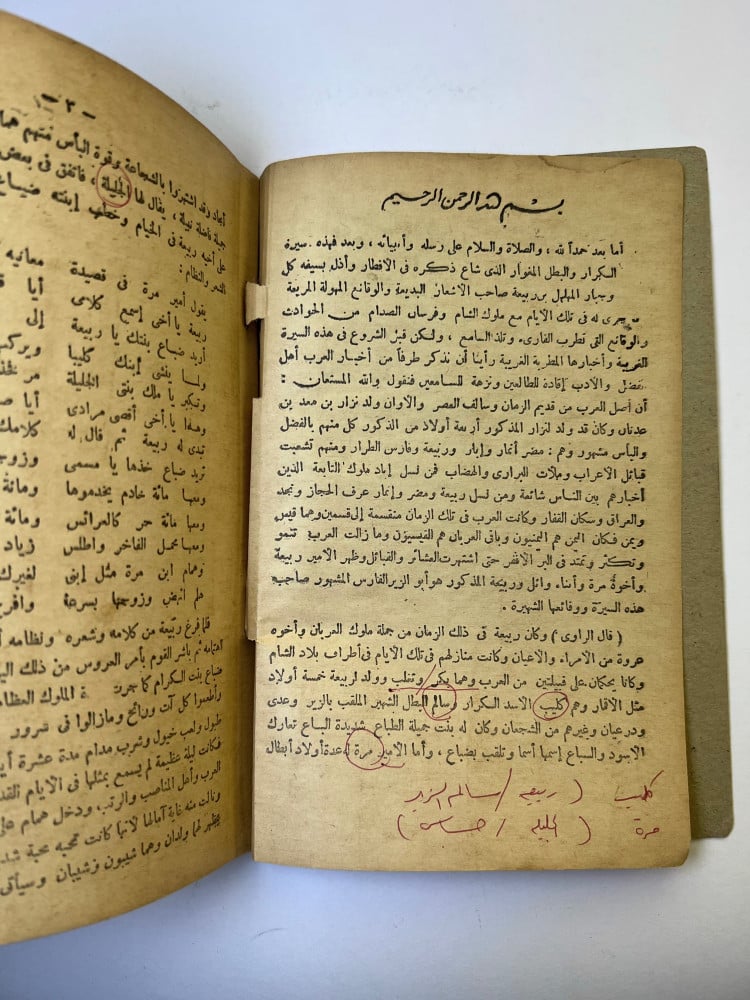 بسم الله الرحمن الرحيم
أما بعد حمداً لله ، والصلاة والسلام على رسله وأنبيائه ، وبعد فهذه سيرة
السكرار والبطل المغوار الذى شاع ذكره فى الاقطار وأذل بسيفه كل
وجبار المهلهل بن ربيعة صاحب الاشعار البديعة والوقائع المهولة المريعة
جرى له فى تلك الايام مع ملوك الشام وفرسان الصدام من الحوادث
والوقائع التى تطرب القارىء وتلذ السامع ، ولكن قبل الشروع فى هذه السيرة
الغريبة وأخبارها المطربة الغريبة رأينا أن نذكر طرفاً من أخبار العرب أهل
الفضل والأدب إفادة للطالعين ونزهة للسامعين فنقول والله المستعان :
أن أصل العرب من قديم الزمان وسالف العصر والاوان ولد نزار بن معد بن
عدنان وكان قد ولد لنزار المذكور أربعة أولاد من الذكور كل منهم بالفضل
والباس مشهور وهم : مضر أنمار وإياد وربيعة وفارس الطراد ومنهم تشعبت
قبائل الأعراب وملات البرارى والهضاب فمن نسل إياد ملوك التابعة الذين
أخبارهم بين الناس شائعة ومن نسل ربيعة ومضر وإنمار عرف الحجاز ونجد
والعراق وسكان القفار وكانت العرب فى تلك الزمان منقسمة إلى قسمين وهما قيس
ويمن فكان اليمن هم اليمنيون وباقى العربان هم القيسيون وما زالت العرب تنمو
وتكثر وتمتد فى البر الاقفر حتى اشتهرت العشائر والقبائل وظهر الامير ربيعة
وأخوة مرة وأبناء وائل وربيعة المذكور هو أبو الزير الفارس المشهور صاحب
هذه السيرة ووقائعها الشهيرة .
( قال الراوى ) وكان ربيعة فى ذلك الزمان من جملة ملوك العربان وأخوه
مروة من الامراء والاعيان وكانت منازلهم فى تلك الايام فى أطراف بلاد الشام
وكانا يحكمان على قبيلتين من العرب وهما بكر وتغلب وولد لربيعة خمسة أولاد
مثل الاقار وهم كليب الاسد السكرار وسالم البطل الشهير الملقب بالزير وعدى
ودرعيان وغيرهم من الشجعان وكان له بنت جميلة الطباع شديدة الباع تعارك
الاسود والسباع إسمها أسما وتلقب بضباع ، وأما الامير مرة فعدة أولاد أبطال
كليب ( ربيعه / سالم الزير
مرة ( الجليله / جساس )
— ٣ —
أمجاد وقد اشتهروا بالشجاعة وقوة البأس منهم همام
جميلة فاضلة نبيلة ، يقال لها الجليلة ، فاتفق فى بعض
على أخيه ربيعة فى الخيام وخطب إبنته ضباع
الشعر والنظام :
يقول أمير مرة فى قصيدة معانيه
ربيعة يا أخى إسمع كلامى أيا
أريد ضباع بنتك يا ربيعة إلى
ولما ينشى إبنك كليبا ويركب
وتكبر يا ملك بنتى الجليلة
وهذا يا أخى أقصى مرادى أيا
تبدى له ربيعة ثم قال له كلامك
تريد ضباع خذها يا مسمى وزوج
ومعها مائة خادم يخدموها ومائة
ومعها مائة حر كالعرائس ومائة
ومعها محمل الفاخر وأطلس زياد
وهمام ابن مرة مثل إبنى لغيرك
هلم انهض وزوجها بسرعة وافرح
فلما فرغ ربيعة من كلامه وشعره ونظامه
اهتمامه ثم باشر القوم بأمر العروس من ذلك
ضباع بنت السكرام كما جرت الملوك العظام
وأطعموا كل آت ورائح ومازالوا فى سرور
طبول ولعب خيول وشرب مدام مدة عشرة
فكانت ليلة عظيمة لم يسمع بمثلها فى الايام
العرب وأهل المناصب والرتب ودخل همام على
ونالت منه غاية آمالها لانها كانت تحبه محبة
فظهر لهما ولدان وهما شيبون وشيبان وسيأتى